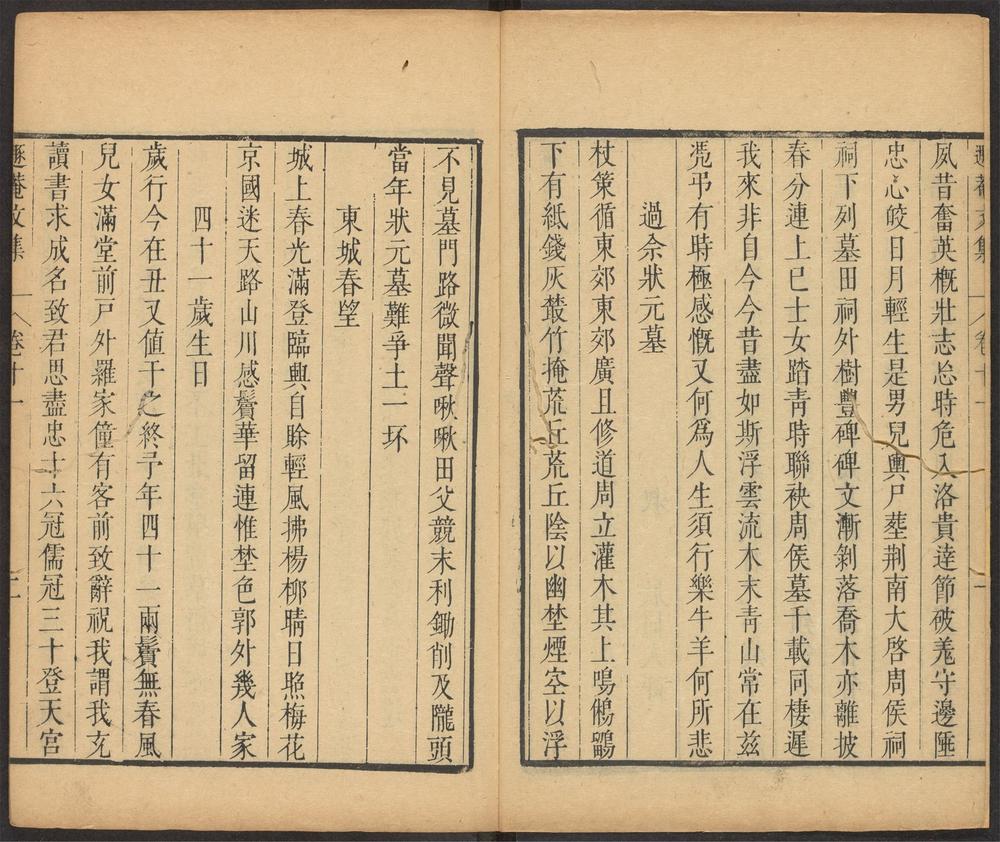 夙昔奮英概壯志㤀時危入洛貴達節破羌守邊陲
忠心皎日月輕生是男兒輿尸塟荆南大啓周侯祠
祠下列墓田祠外樹豐碑碑文漸剝落喬木亦離披
春分連上巳士女踏靑時聯袂周侯墓千載同棲遲
我來非自今今昔盡如斯浮雲流木末靑山常在兹
凴弔有時極感慨又何爲人生須行樂牛羊何所悲
過余狀元墓
杖策循東郊東郊廣且修道周立灌木其上鳴鵂鶹
下有紙錢灰䕺竹掩荒丘荒丘陰以幽埜煙空以浮
不見墓門路微聞聲啾啾田父競末利鋤削及隴頭
當年狀元墓難爭土一坏
東城春望
城上春光滿登臨興自賒輕風拂楊柳晴日照梅花
京國迷天路山川感鬢華留連惟埜色郭外幾人家
四十一歲生日
歲行今在丑又值干之終予年四十一兩鬢無春風
兒女滿堂前戸外羅家僮有客前致辭祝我謂我充
讀書求成名致君思盡忠十六冠儒冠三十登天宮
遯菴文集 卷十一 二